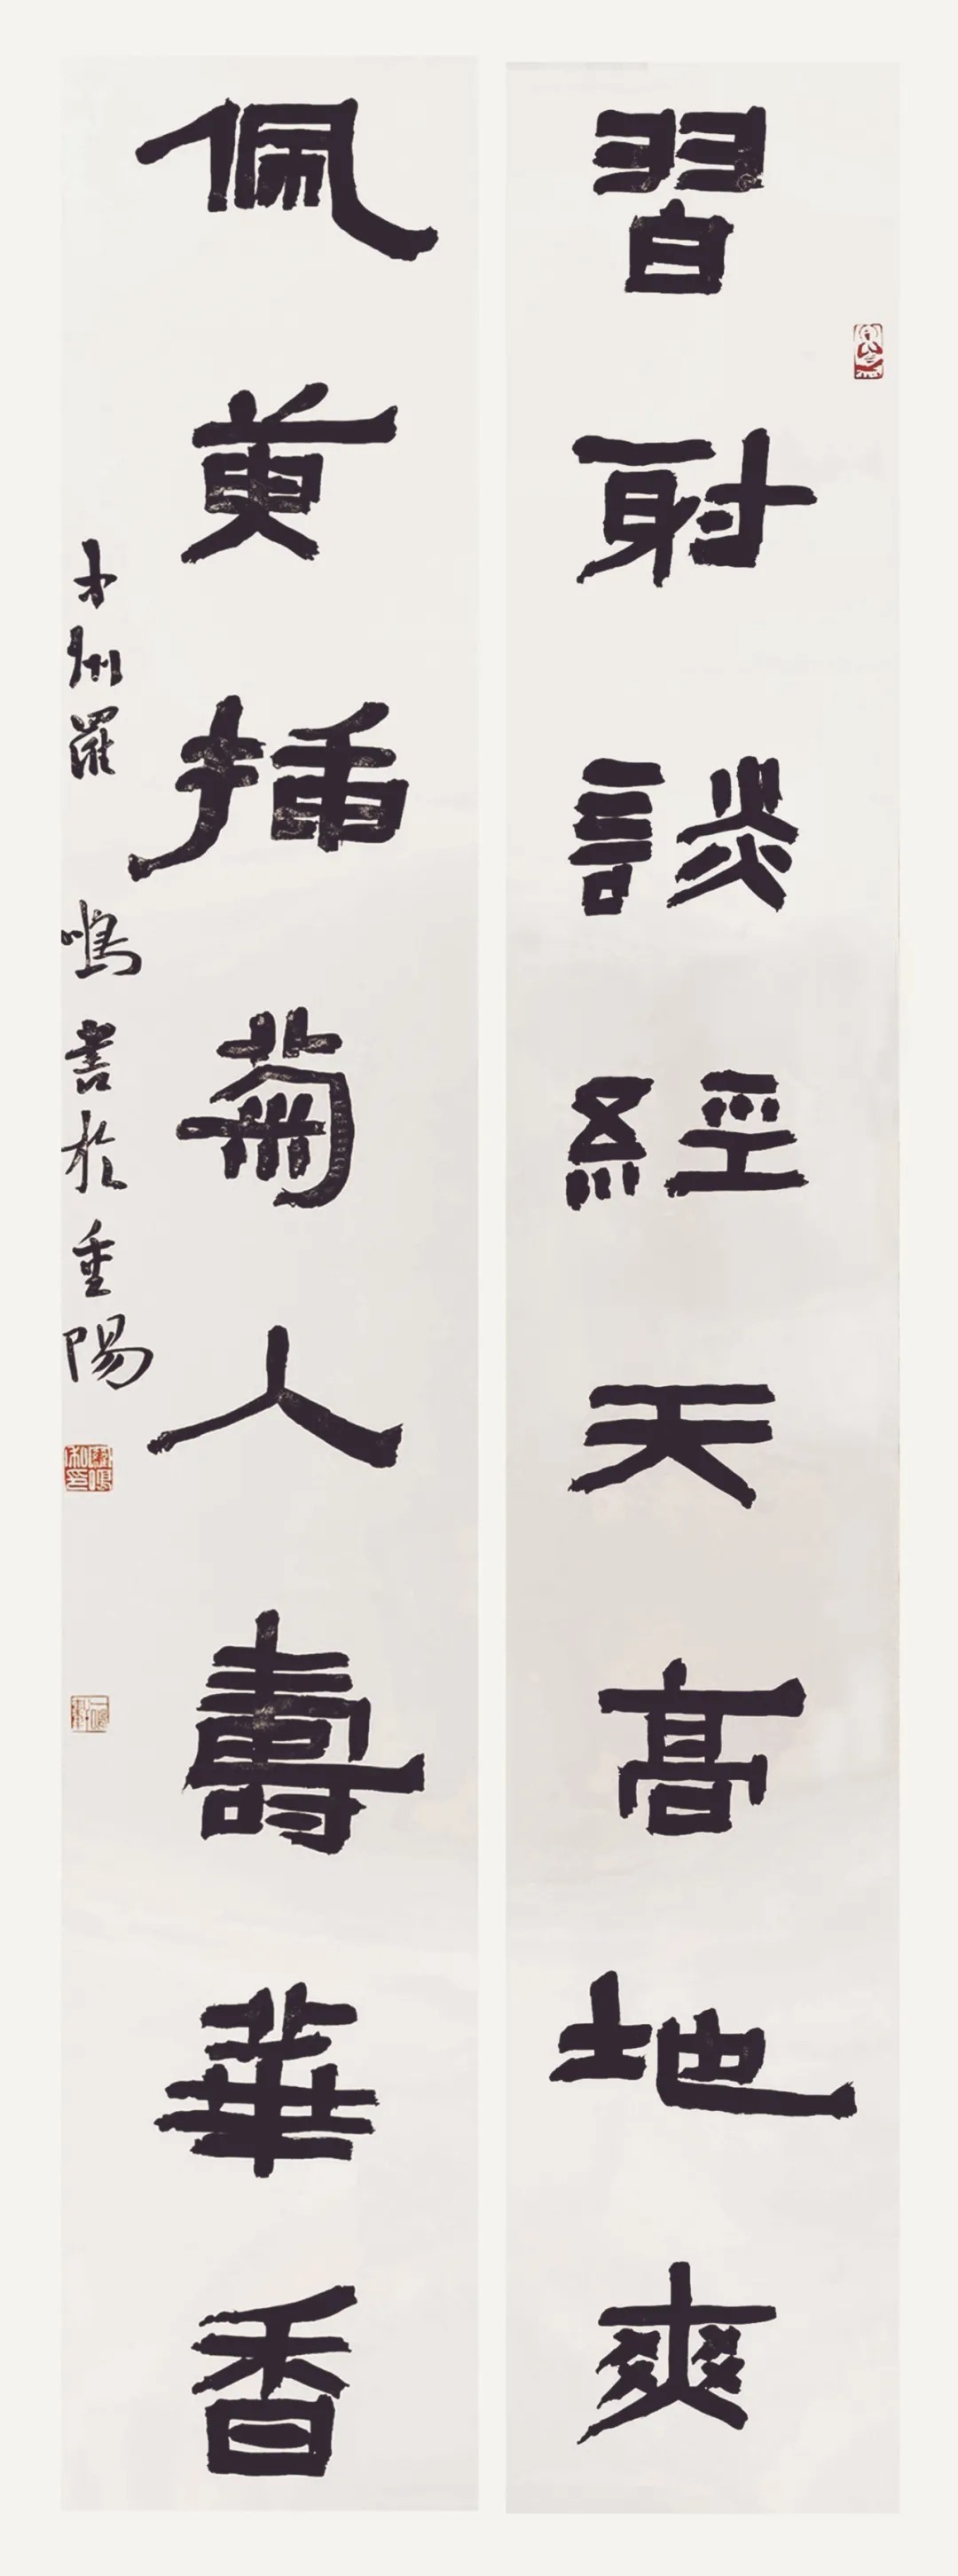 習射談經天高地爽
佩萸插菊人壽華香
州羅鳴書於重陽
羅鳴私印